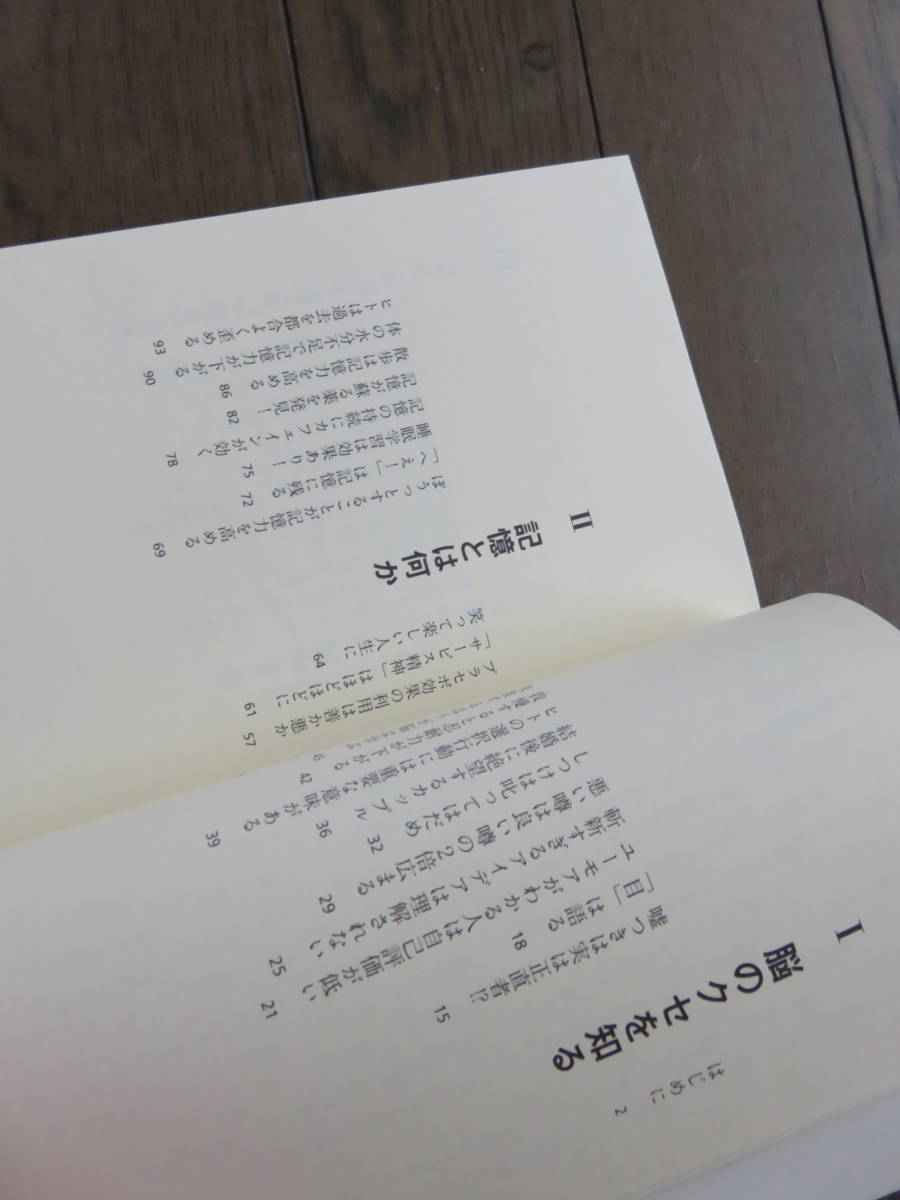 はじめに 2
I 脳のクセを知る
嘘つきは実は正直者!? 15
「目」は語る 18
ユーモアがわかる人は自己評価が低い 21
斬新すぎるアイディアは理解されない 25
悪い噂は良い噂の2倍広まる 29
しつけは叱ってはだめ 32
結婚後に絶望するカップル 36
ヒトの選択行動には重要な意味がある 39
我慢すると忍耐力が下がる 42
プラセボ効果の利用は善か悪か 57
「サービス精神」はほどほどに 61
笑って楽しい人生に 64
II 記憶とは何か
ぼうっとすることが記憶力を高める 69
「へぇー」は記憶に残る 72
睡眠学習は効果あり! 75
記憶の持続にカフェインが効く 78
記憶が蘇る薬を発見! 82
散歩は記憶力を高める 86
体の水分不足で記憶力が下がる 90
ヒトは過去を都合よく歪める 93